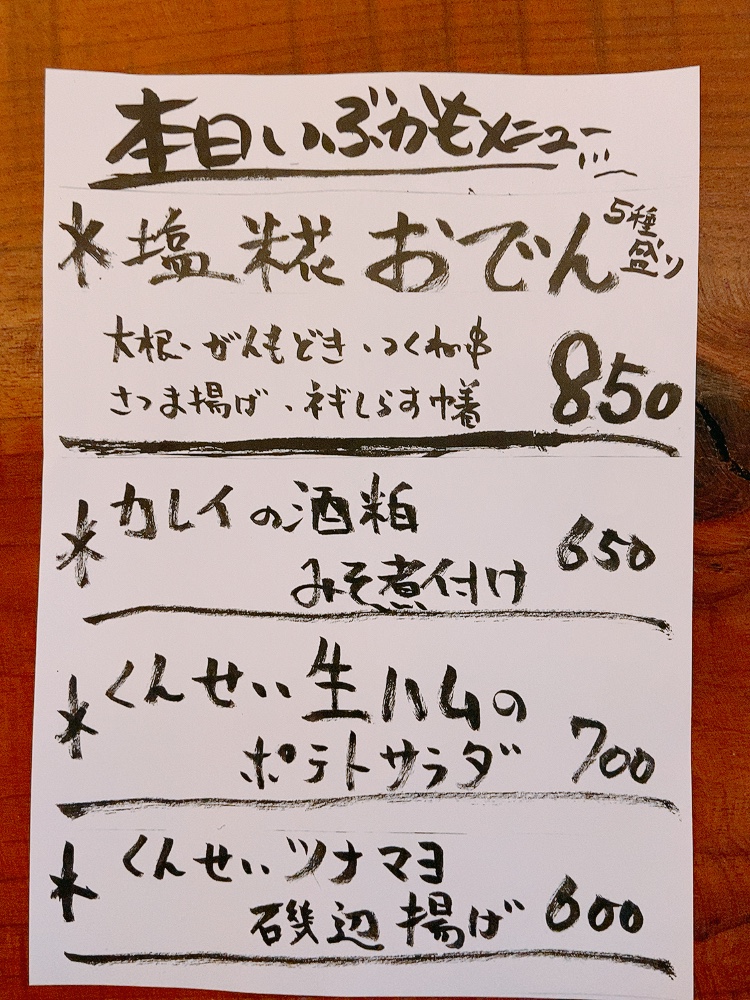 本日いぶかもメニュー
*塩糀おでん 5種盛り
大根、がんもどき、つくね串
さつま揚げ、ネギしらす巾着
850
*カレイの酒粕
みそ煮付け 650
*くんせい生ハムの
ポテトサラダ 700
*くんせいツナマヨ
磯辺揚げ 600